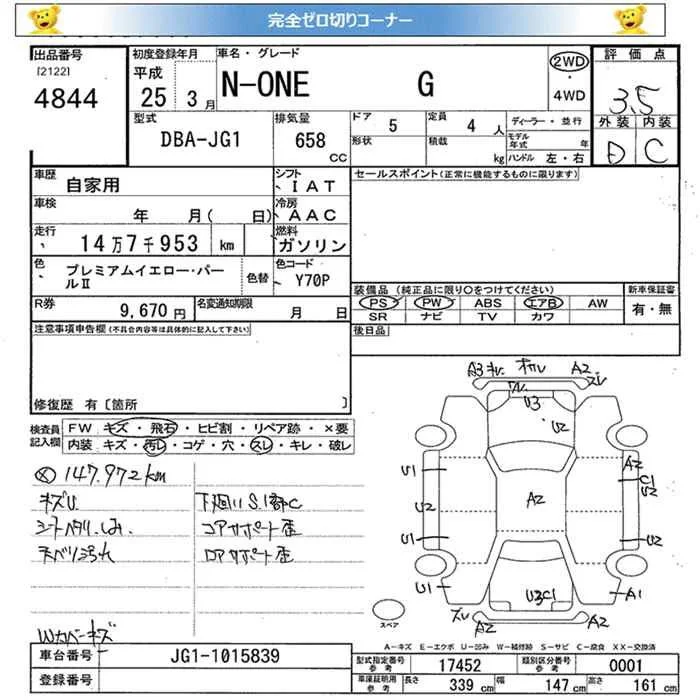 完全ゼロ切りコーナー
出品番号 初度登録年月 車名・グレード 評価点
[2122] 平成 N-ONE G 2WD ・ 4WD 3.5
4844 25 3月
外装 内装
D C
型式 排気量 ドア 5 定員 4人 ディーラー・並行
DBA-JG1 658 CC 形状 積載 kg モデル年式 年
ハンドル 左・右
車歴 自家用 シフト IAT セールスポイント(正常に機能するものに限ります)
車検 年 月( 日) 冷房 AAC
走行 14万7千953 km 燃料 ガソリン
色 プレミアムイエロー・パールⅡ 色替 色コード Y70P
装備品(純正品に限り○をつけてください) 新車保証書
PS PW ABS エアB AW 有・無
SR ナビ TV カワ
R券 9,670円 名変通知期限 月 日
後日品
注意事項申告欄(不具合内容等は具体的に記入して下さい)
修復歴 有[箇所 ]
検査員記入欄 FW キズ・飛石・ヒビ割・リペア跡・×要
内装 キズ・汚レ・コゲ・穴・スレ・キレ・破レ
147.972km
キズU. 下廻りS.1部C
シートヘタリ.しみ. コアサポート歪
天ベリ汚れ ロアサポート歪
Wカバーキズ
A3 A2 ズレ
U3
U2
U1 A2
C1
U2 A2 U2
U1 U2
U3C1 A1
ズレ A2 A2
スペア
A-キズ E-エクボ U-凹み W-補修跡 S-サビ C-腐食 XX-交換済
車台番号 JG1-1015839 型式指定番号 参考 17452 類別区分番号 参考 0001
登録番号 車庫証明用 参考 長さ 339 cm 幅 147 cm 高さ 161 cm